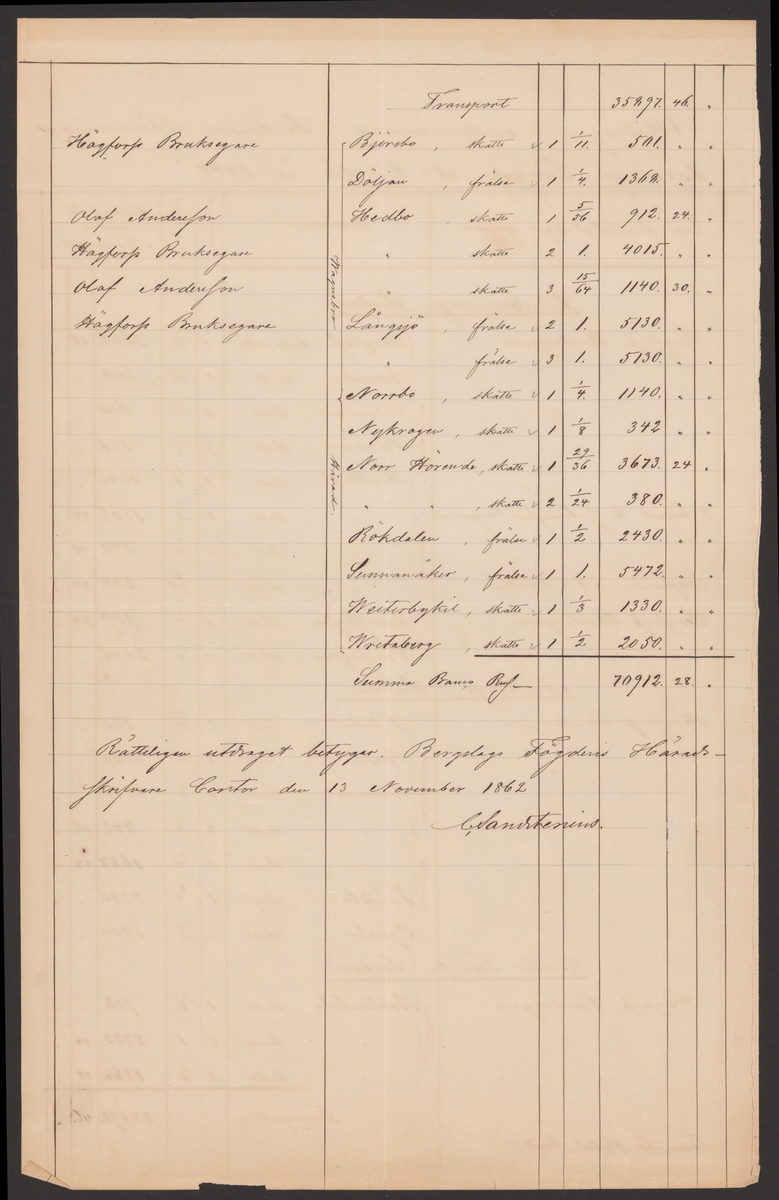 Transport 35897. 46. "
Högforss Bruksegare Björsbo, skatte 1 1/11. 501. " "
Döljan, frälse 1 1/4. 1368. " "
Olof Andersson Hedbo, skatte 1 5/36 912. 24. "
Högforss Bruksegare " skatte 2 1. 4015. " "
Olof Andersson " skatte 3 15/64 1140. 30. "
Högforss Bruksegare Långsjö, frälse 2 1. 5130. " "
" frälse 3 1. 5130. " "
Norrbo, skatte 1 1/4. 1140. " "
Nykrogen, skatte 1 1/8 342 " "
Norr Hörende, skatte 1 29/36 3673. 24 "
" ", skatte 2 1/24 380. " "
Rökdalen, frälse 1 1/2 2430. " "
Sunnanåker, frälse 1 1. 5472. " "
Westerbykil, skatte 1 1/3 1330. " "
Wretaberg, skatte 1 1/2 2050. " "
Summa Banco Rd 70912. 28. "
Rätteligen utdraget betygar. Bergslags Fögderis Härads-
skrifvare Contor den 13 November 1862
C. Sandstenius.